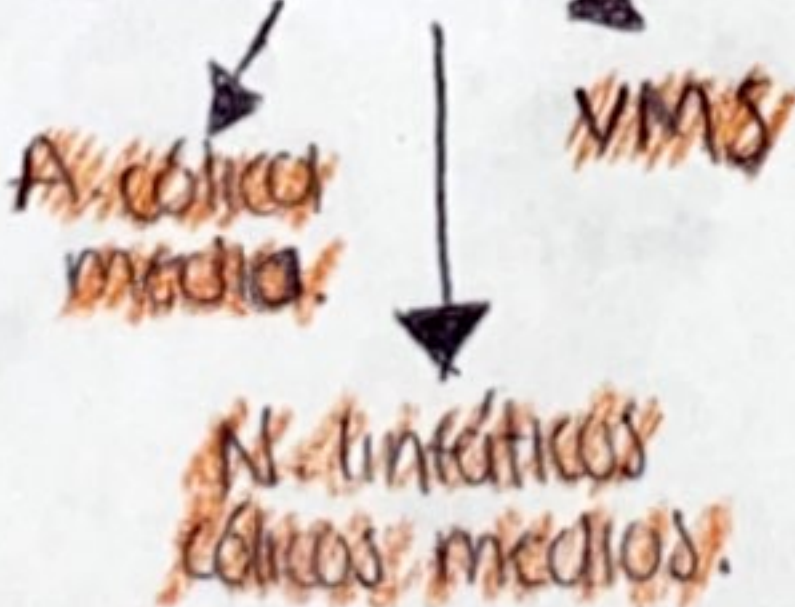 A. cólica
media.
VMS
N. linfáticos
cólicos medios.